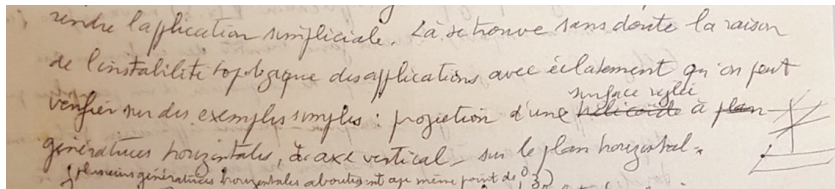 rendre l'application simpliciale. Là se trouve sans doute la raison
de l'instabilité topologique des applications avec éclatement qu'on peut
surface reglée
vérifier sur des exemples simples : projection d'une helicoïde à plan
génératrices horizontales, à axe vertical sur le plan horizontal.
(plusieurs génératrices horizontales aboutissent au même point de